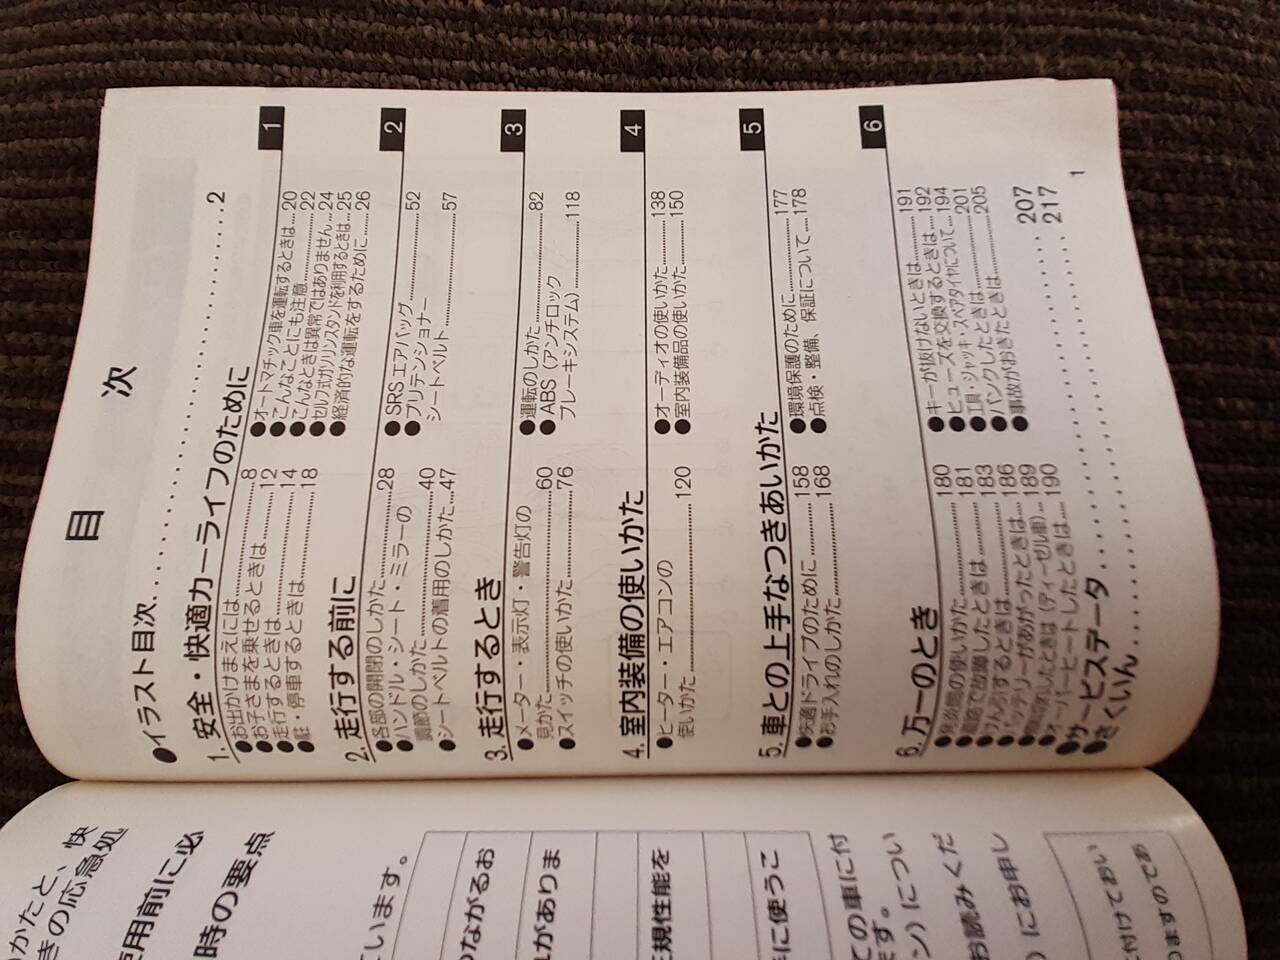 目次
●イラスト目次 2
1. 安全・快適カーライフのために
1
●お出かけまえには 8
●お子さまを乗せるときは 12
●走行するときは 14
●駐・停車するときは 18
●オートマチック車を運転するときは 20
●こんなことにも注意 22
●こんなときは異常ではありません 24
●セルフ式ガソリンスタンドを利用するときは 25
●経済的な運転をするために 26
2. 走行する前に
2
●各部の開閉のしかた 28
●ハンドル・シート・ミラーの
調節のしかた 40
●シートベルトの着用のしかた 47
●SRSエアバッグ 52
●プリテンショナー
シートベルト 57
3. 走行するとき
3
●メーター・表示灯・警告灯の
見かた 60
●スイッチの使いかた 76
●運転のしかた 82
●ABS(アンチロック
ブレーキシステム) 118
4. 室内装備の使いかた
4
●ヒーター・エアコンの
使いかた 120
●オーディオの使いかた 138
●室内装備品の使いかた 150
5. 車との上手なつきあいかた
5
●快適ドライブのために 158
●お手入れのしかた 168
●環境保護のために 177
●点検・整備、保証について 178
6. 万一のとき
6
●発炎筒の使いかた 180
●路上で故障したときは 181
●けん引するときは 183
●バッテリーがあがったときは 186
●燃料切れしたときは(ディーゼル車) 189
●オーバーヒートしたときは 190
●キーが抜けないときは 191
●ヒューズを交換するときは 192
●工具・ジャッキ・スペアタイヤについて 194
●パンクしたときは 201
●事故がおきたときは 205
●サービスデータ 207
●さくいん 217
1
かたと、快
きの応急処
使用前に必
時の要点
います。
つながるお
れがありま
正規性能を
手に使うこ
この車に付
ます。
ン)につい
お読みくだ
)にお申し
付けておい
りますのであ